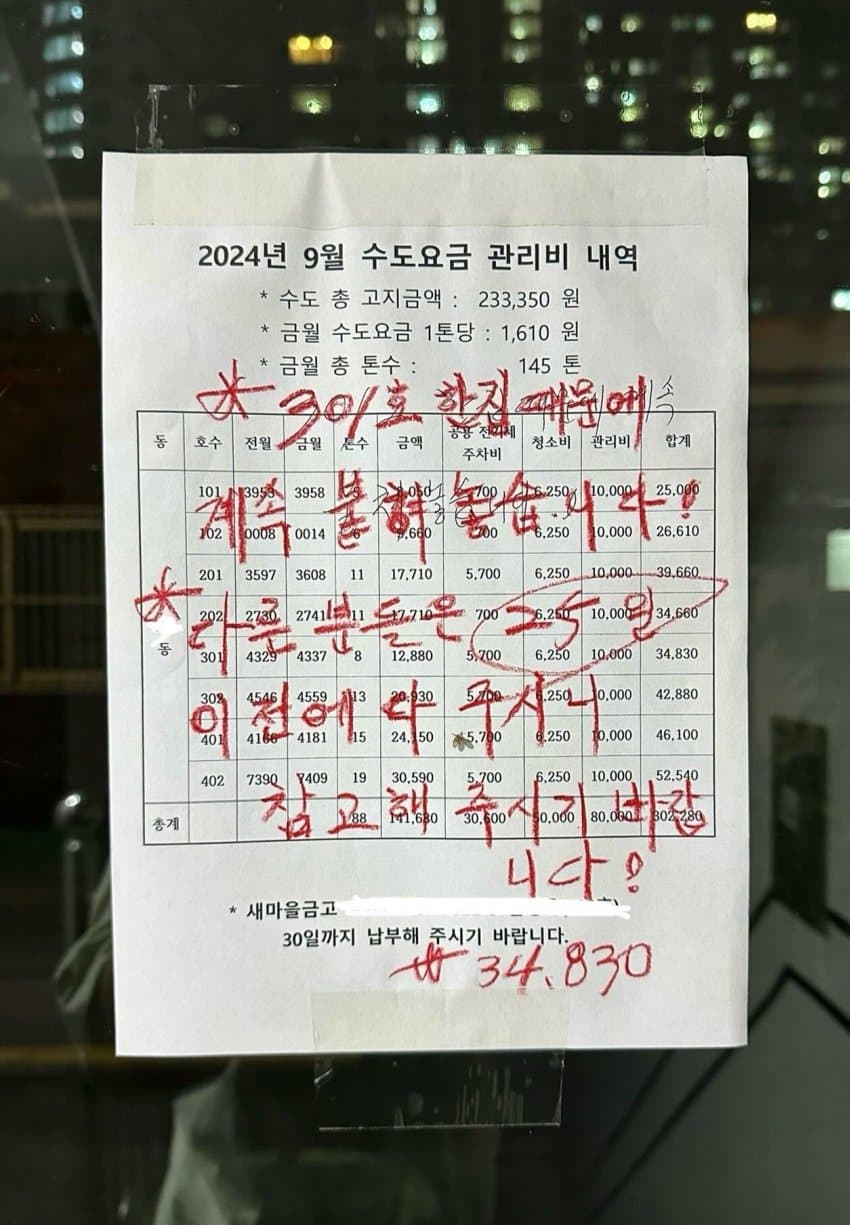 2024년 9월 수도요금 관리비 내역
* 수도 총 고지금액 : 233,350 원
* 금월 수도요금 1톤당 : 1,610 원
* 금월 총 톤수 : 145 톤
* 301호 한집 때문에
동 호수 전월 금월 톤수 금액 공용 전기세 주차비 청소비 관리비 합계
101 3953 3958 5 8,050 700 6,250 10,000 25,000
계속 붙혀 놓습니다!
102 0008 0014 6 9,660 700 6,250 10,000 26,610
201 3597 3608 11 17,710 5,700 6,250 10,000 39,660
* 다른 분들은 25일
202 2730 2741 11 17,710 700 6,250 10,000 34,660
동 301 4329 4337 8 12,880 5,700 6,250 10,000 34,830
302 4546 4559 13 20,930 5,700 6,250 10,000 42,880
이전에 다 주시니
401 4166 4181 15 24,150 5,700 6,250 10,000 46,100
402 7390 7409 19 30,590 5,700 6,250 10,000 52,540
참고해 주시기 바랍
총계 88 141,680 30,600 50,000 80,000 302,280
니다!
* 새마을금고
30일까지 납부해 주시기 바랍니다.
₩ 34.830